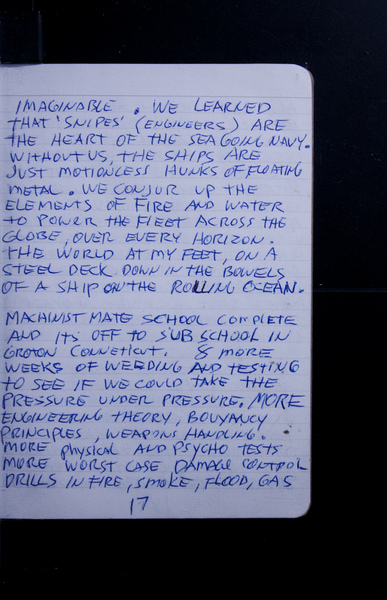 IMAGINABLE. WE LEARNED
THAT 'SNIPES' (ENGINEERS) ARE
THE HEART OF THE SEAGOING NAVY.
WITHOUT US, THE SHIPS ARE
JUST MOTIONLESS HUNKS OF FLOATING
METAL. WE CONJUR UP THE
ELEMENTS OF FIRE AND WATER
TO POWER THE FLEET ACROSS THE
GLOBE, OVER EVERY HORIZON.
THE WORLD AT MY FEET, ON A
STEEL DECK DOWN IN THE BOWELS
OF A SHIP ON THE ROLLING OCEAN.
MACHINIST MATE SCHOOL COMPLETE
AND ITS OFF TO SUB SCHOOL IN
GROTON CONNETICUT. 8 MORE
WEEKS OF WEEDING AND TESTING
TO SEE IF WE COULD TAKE THE
PRESSURE UNDER PRESSURE. MORE
ENGINEERING THEORY, BOUYANCY
PRINCIPLES, WEAPONS HANDLING.
MORE PHYSICAL AND PSYCHO TESTS
MORE WORST CASE DAMAGE CONTROL
DRILLS IN FIRE, SMOKE, FLOOD, GAS
17